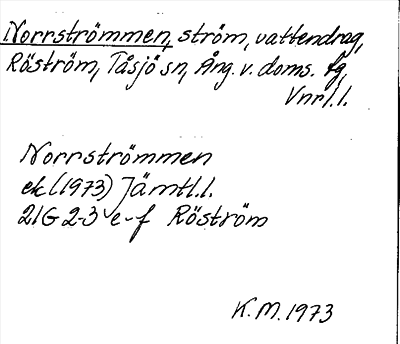 Norrströmmen, ström, vattendrag,
Röström, Tåsjö sn, Ång. v. doms. fg,
Vnrl.l.
Norrströmmen
ek (1973) Jämtl.l.
21G 2-3 e-f Röström
K.M. 1973